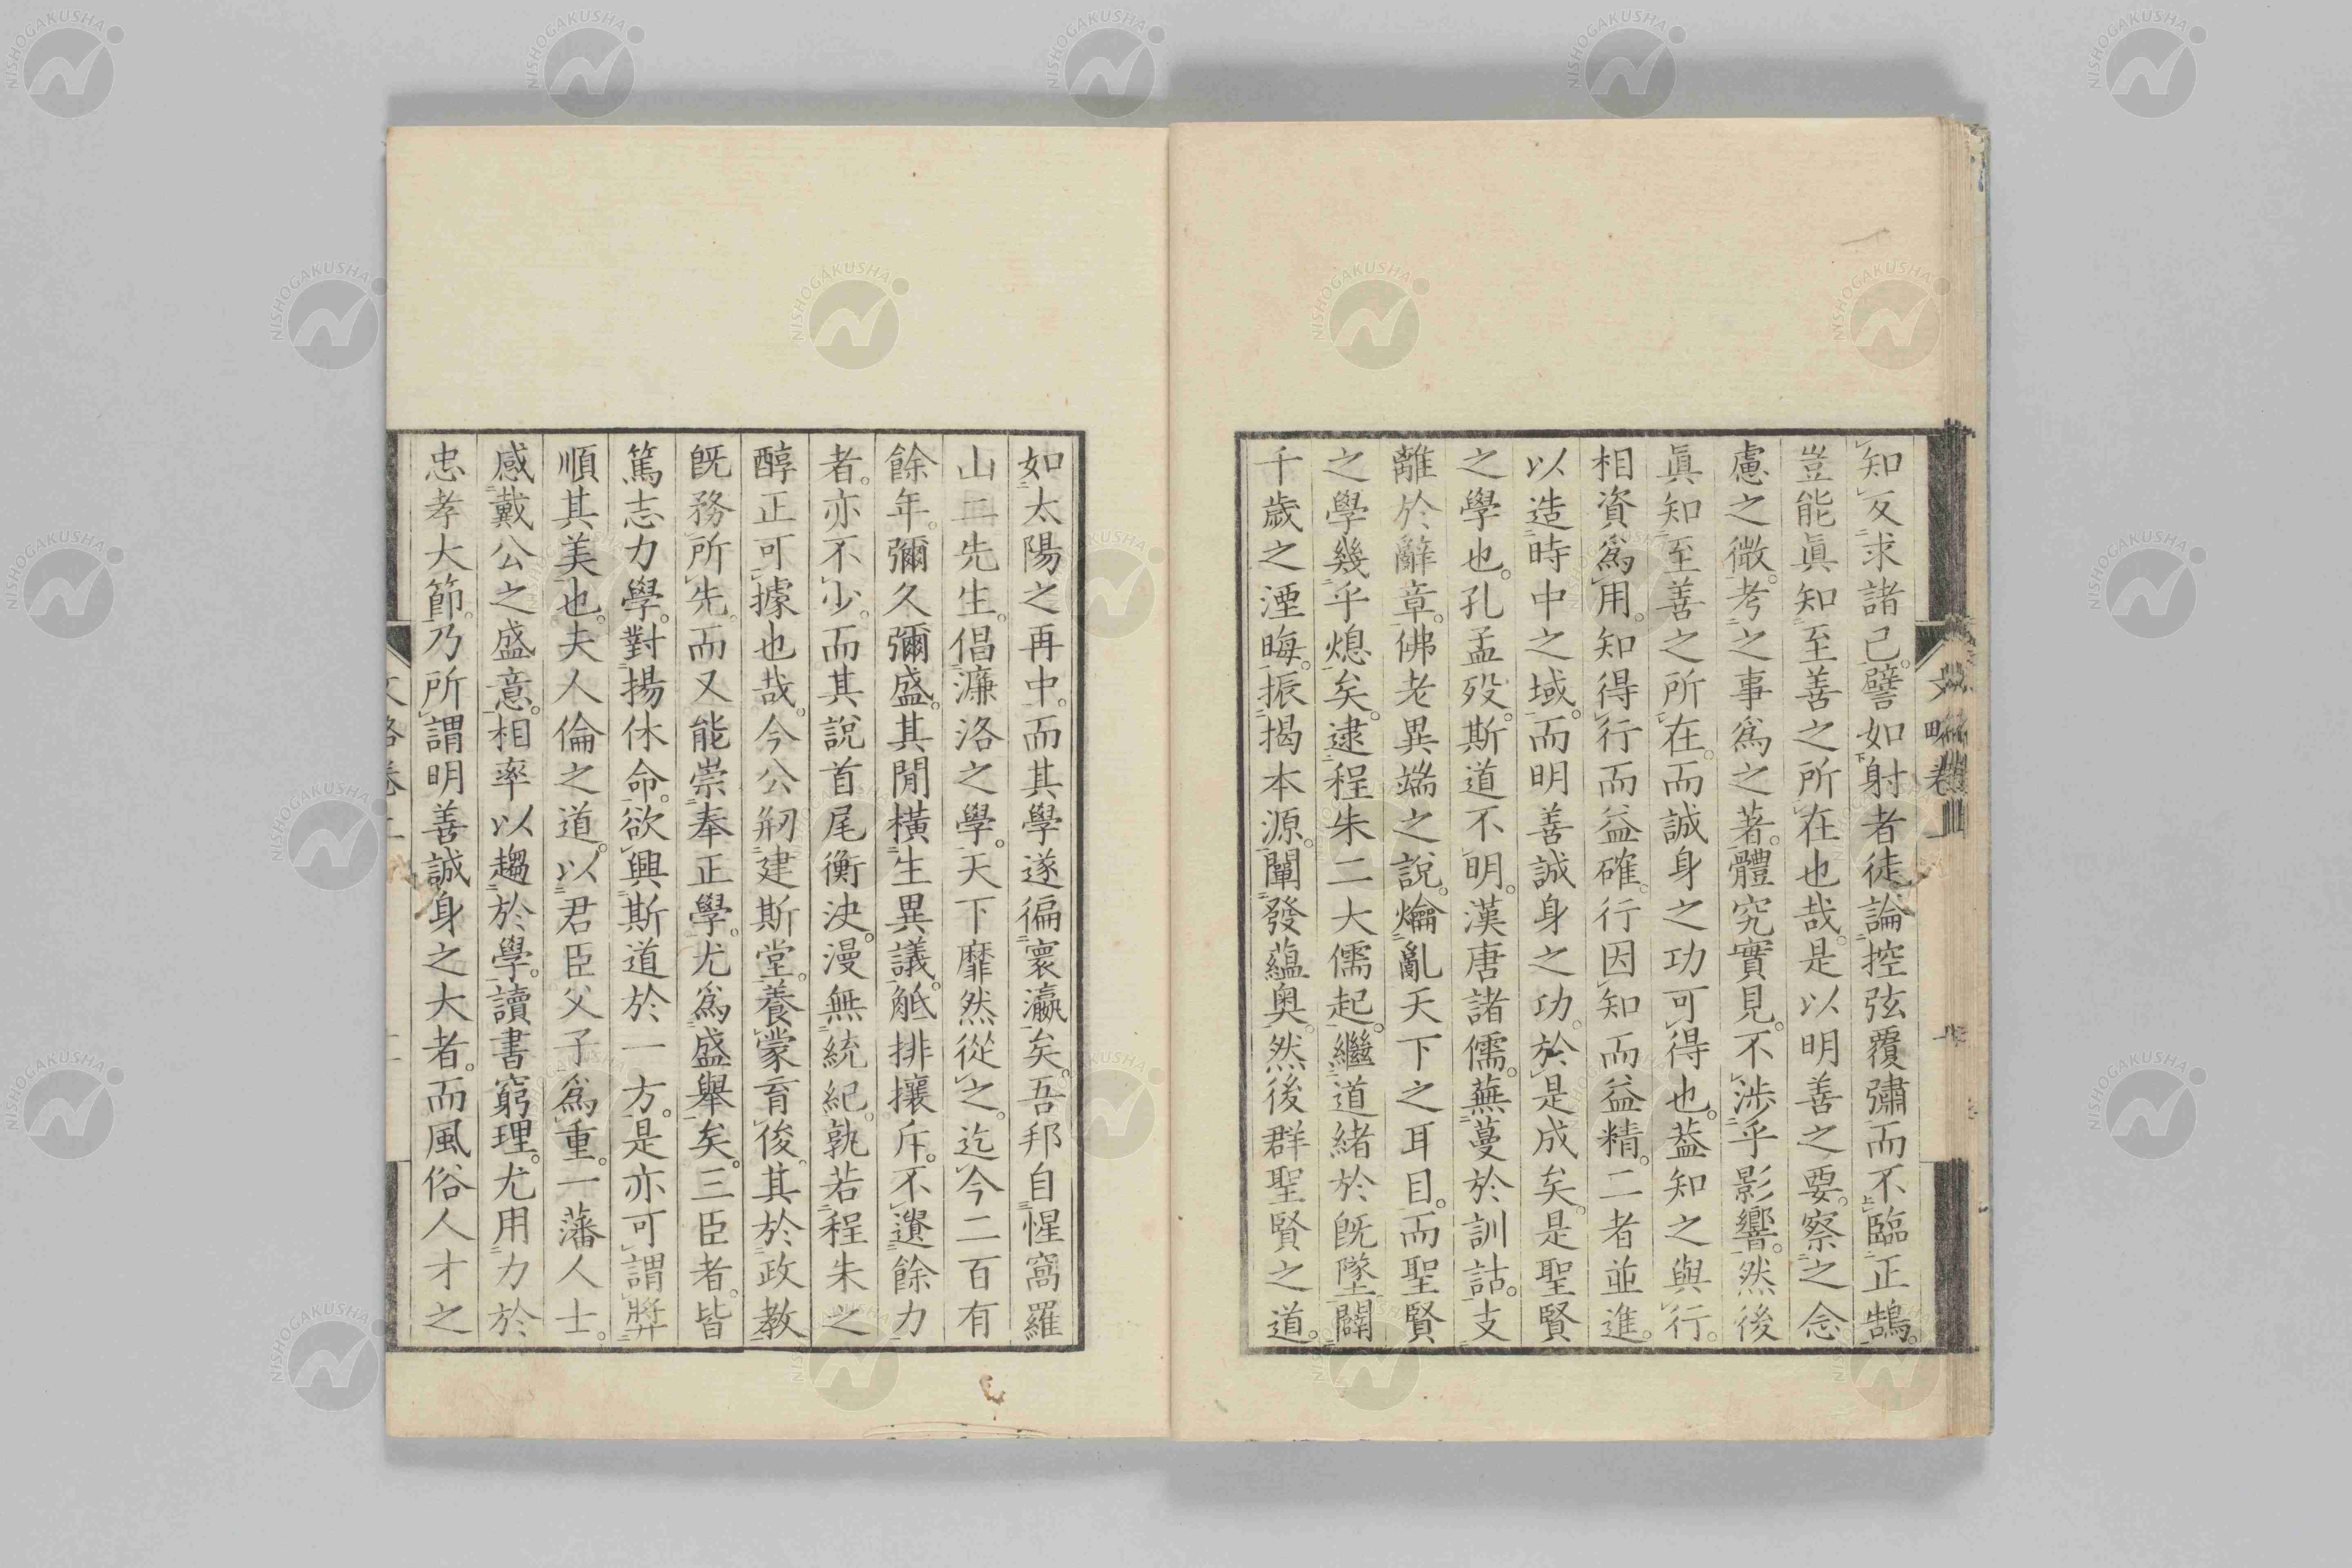 知反求諸己。譬如射者徒論控弦覆彇而不臨正鵠。
豈能眞知至善之所在也哉。是以明善之要。察之念
慮之微。考之事爲之著。體究實見。不涉乎影響。然後
眞知至善之所在。而誠身之功可得也。蓋知之與行。
相資爲用。知得行而益確。行因知而益精。二者並進。
以造時中之域。而明善誠身之功。於是成矣。是聖賢
之學也。孔孟歿。斯道不明。漢唐諸儒。蕪蔓於訓詁。支
離於辭章。佛老異端之說。爚亂天下之耳目。而聖賢
之學幾乎熄矣。逮程朱二大儒起。繼道緒於旣墜。闢
千歲之湮晦。振揭本源。闡發蘊奥。然後群聖賢之道。
如太陽之再中。而其學遂徧寰瀛矣。吾邦自惺窩羅
山二先生。倡濂洛之學。天下靡然從之。迄今二百有
餘年。彌久彌盛。其閒橫生異議。觝排攘斥。不遺餘力
者。亦不少。而其說首尾衡決。漫無統紀。孰若程朱之
醇正可據也哉。今公剏建斯堂。養蒙育俊。其於政教
旣務所先。而又能崇奉正學。尤爲盛舉矣。三臣者。皆
篤志力學。對揚休命。欲興斯道於一方。是亦可謂奬
順其美也。夫人倫之道。以君臣父子爲重。一藩人士。
感戴公之盛意。相率以趨於學。讀書窮理。尤用力於
忠孝大節。乃所謂明善誠身之大者。而風俗人才之
文略卷
NISHOGAKUSHA